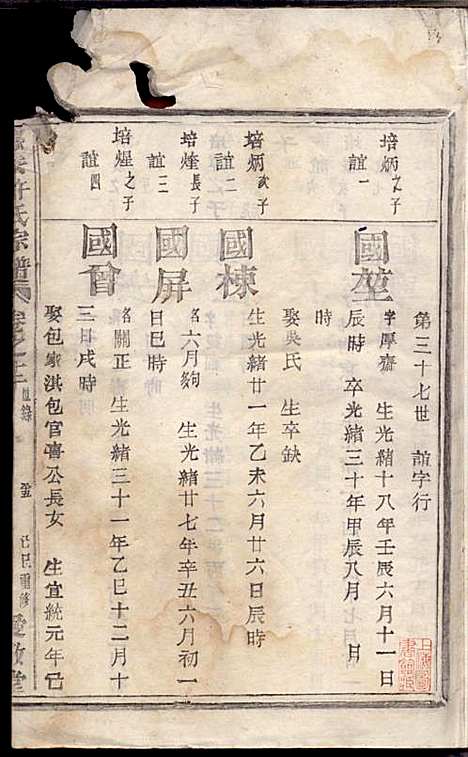 第三十七世 誼字行
培炳之子
誼一
國堃
字厚齋 生光緒十八年壬辰六月十一日
辰時 卒光緒三十年甲辰八月 七月 日
時
娶吳氏 生卒缺
培炳次子
誼二
國棟
生光緒廿一年乙未六月廿六日辰時
培煃長子
誼三
國屏
名六月夠 生光緒廿七年辛丑六月初一
日巳時
培煋之子
誼四
國會
名關正 生光緒三十一年乙巳十二月十
三日戌時
娶包家淇包官喜公長女 生宣統元年己
許氏宗譜
己巳重修 愛敬堂